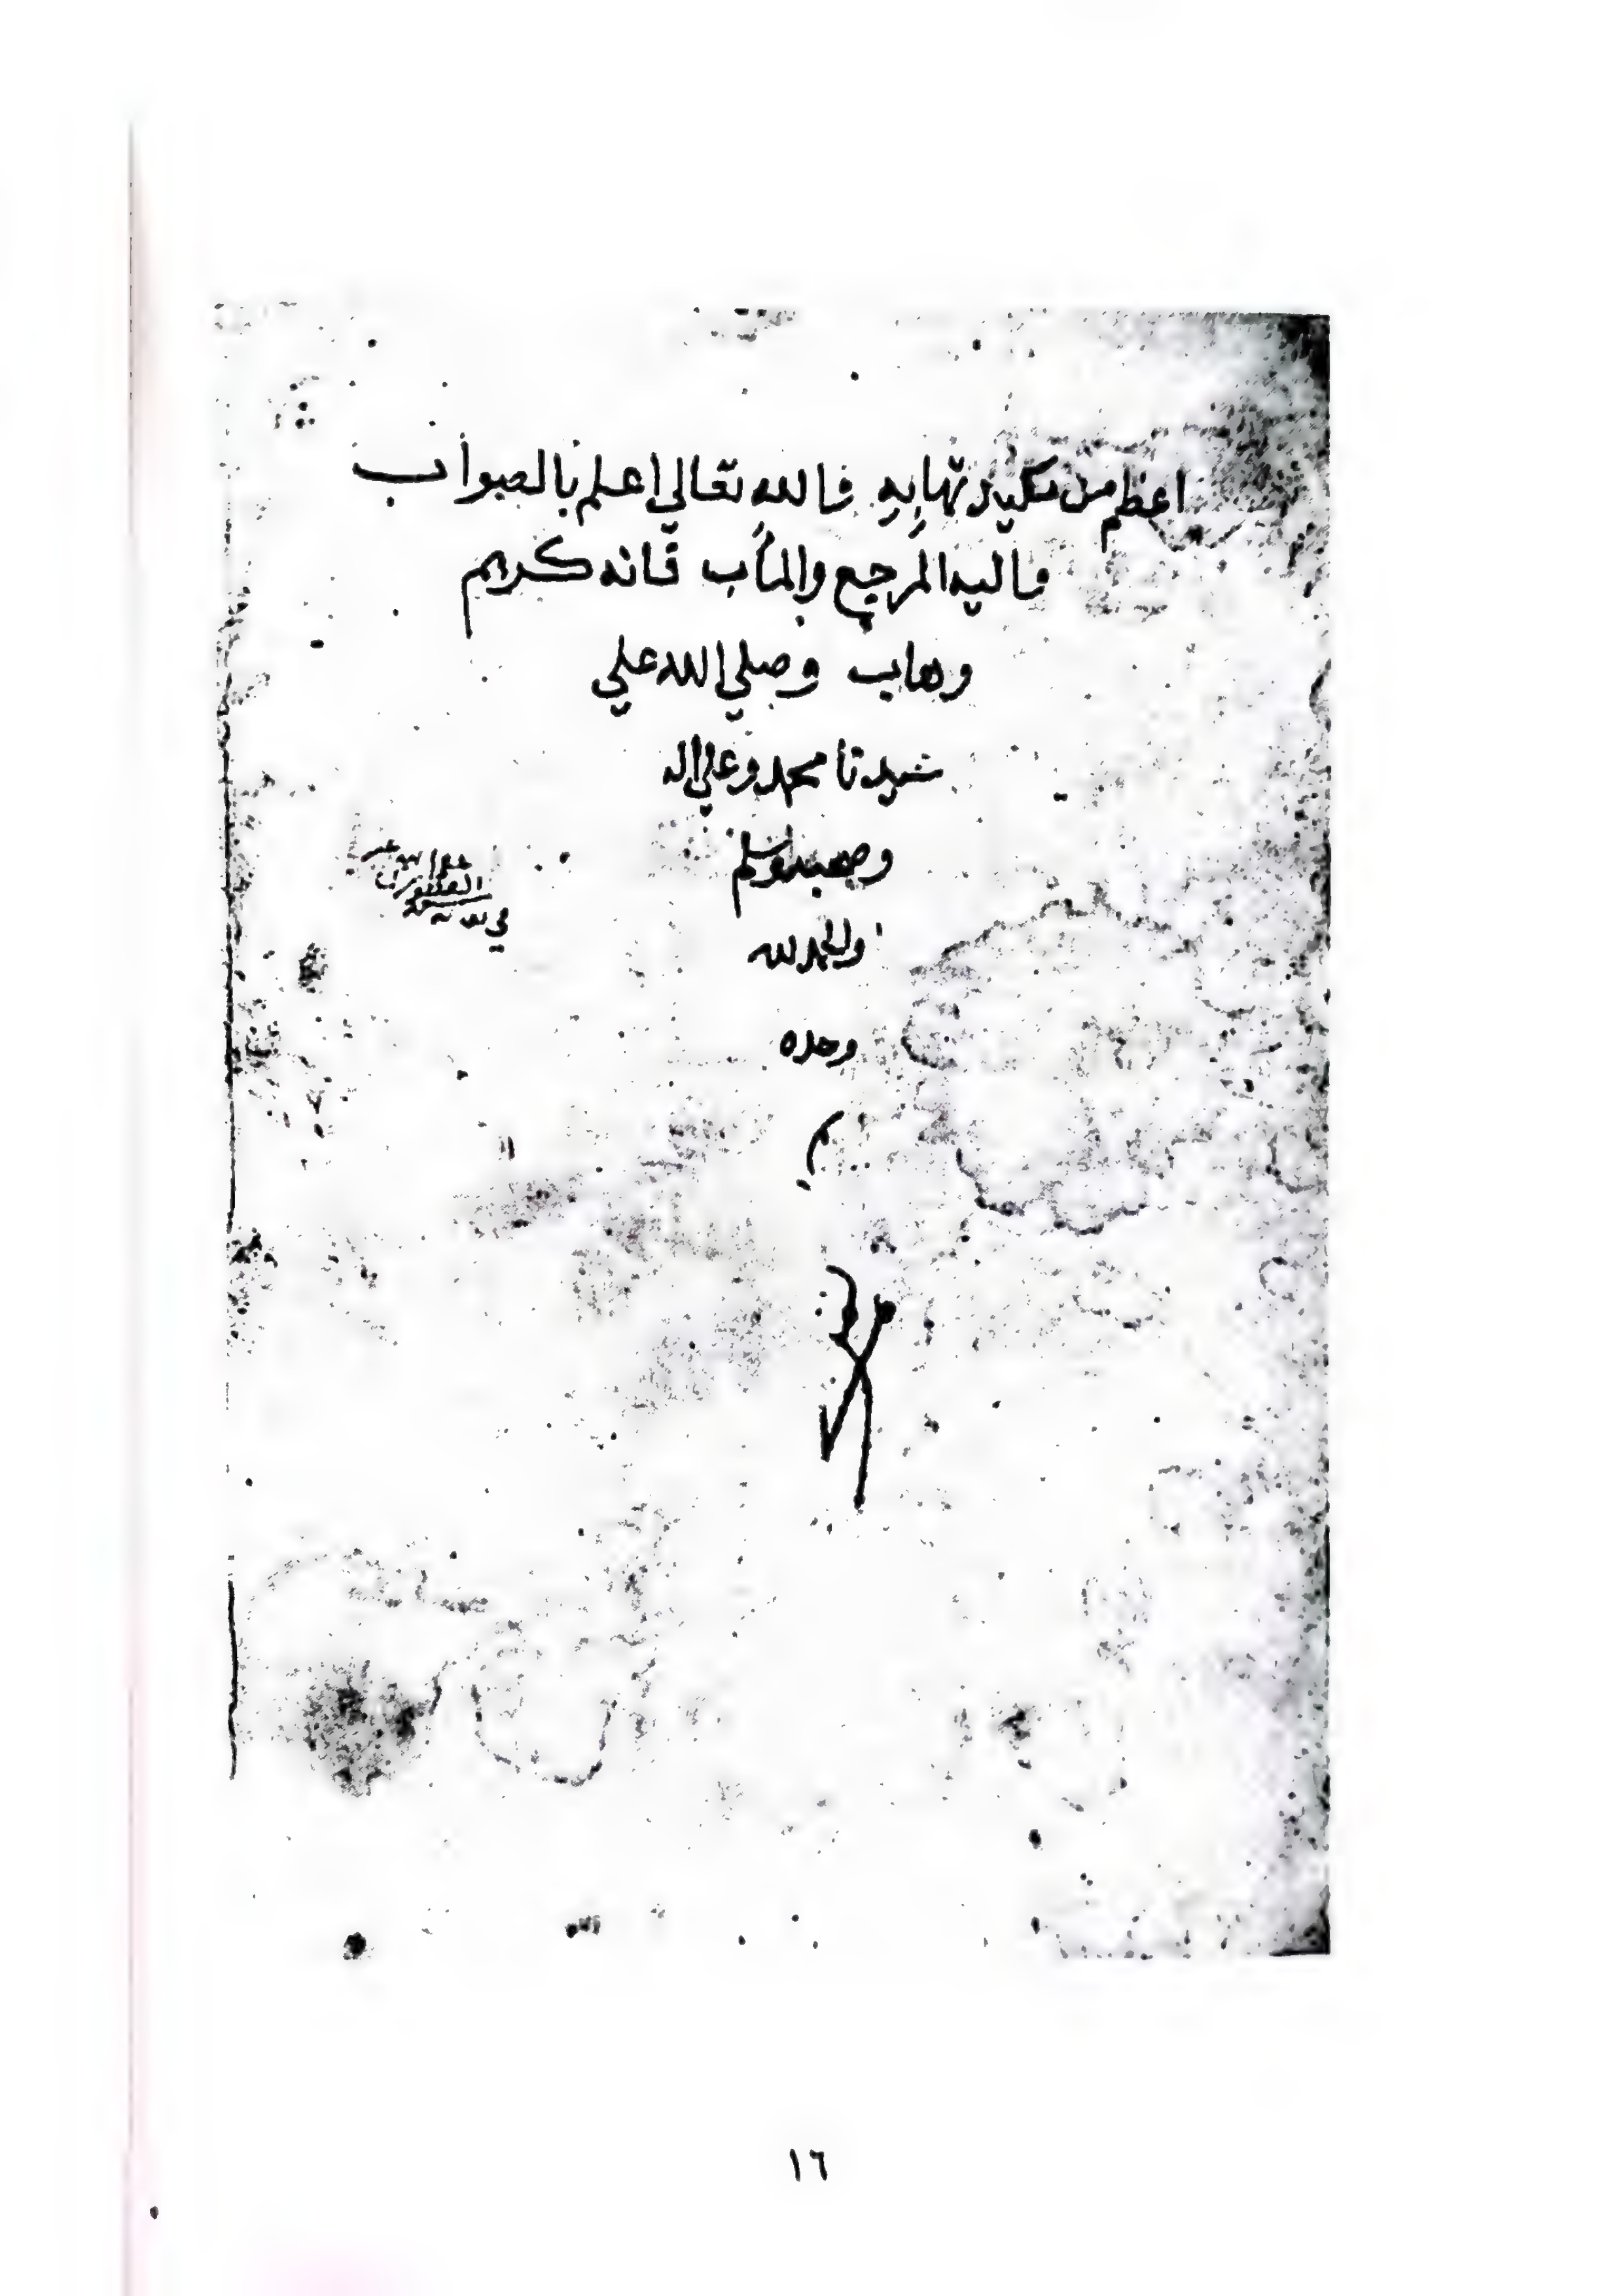 اعظم من مكيدتها به فالله تعالى اعلم بالصواب
واليه المرجع والمأب فانه كريم
وهاب وصلي الله علي
سيدنا محمد وعلي اله
وصحبه وسلم
والحمد لله
وحده
م
١٦